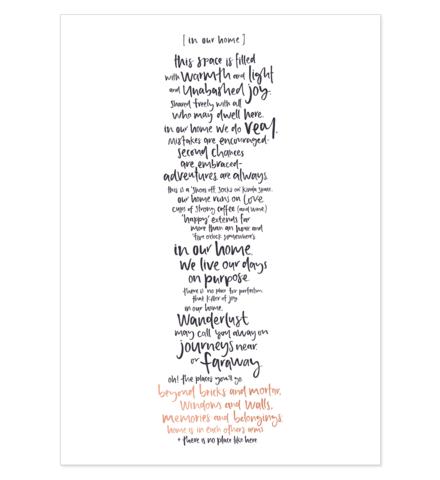 [in our home]
this space is filled
with warmth and light
and unabashed joy.
shared freely with all
who may dwell here.
in our home we do real.
mistakes are encouraged.
second chances
are embraced-
adventures are always.
this is a 'shoes off, socks on' kinda space.
our home runs on love
cups of strong coffee (and wine)
'happy' extends far
more than an hour and
'five o'clock somewhere's
in our home.
we live our days
on purpose.
there is no place for perfection
that killer of joy
in our home.
Wanderlust
may call you away on
journeys near
or faraway.
oh! the places you'll go
beyond bricks and mortar,
windows and walls,
memories and belongings.
home is in each others arms
+ there is no place like here